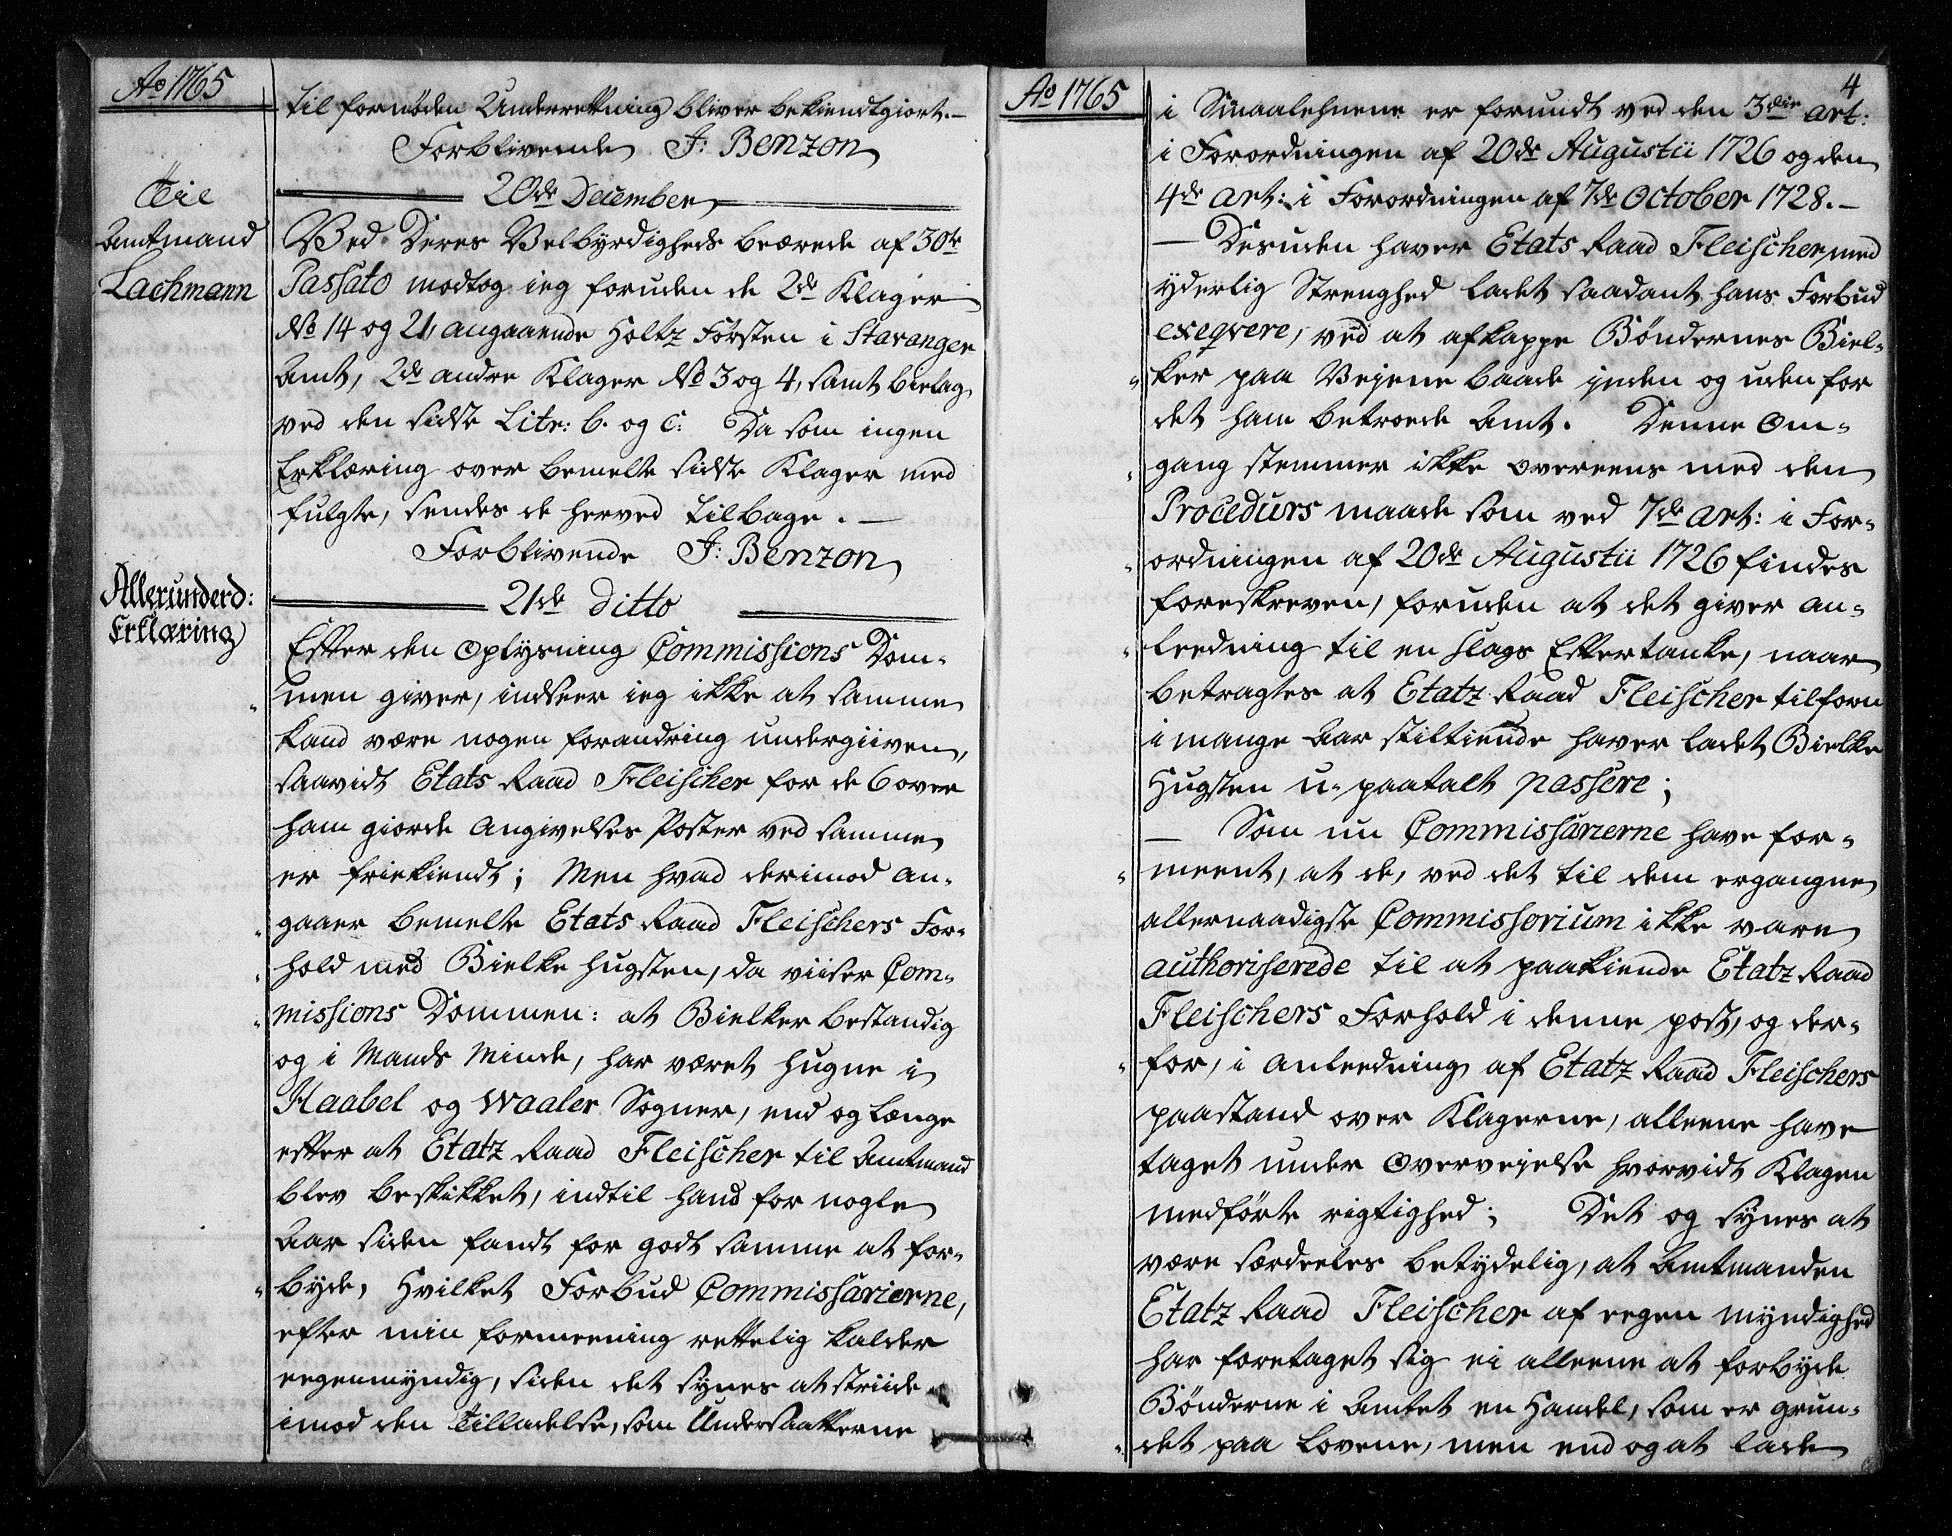 Ao 1765
til fornøden Underretning bliver bekiendtgiort.—
Forblivende J: Benzon
20de December
Til
Amtmand
Lachmann
Ved Deres Velbyrdigheds beærede af 30te
Passato modtog ieg foruden de 2de Klager
No 14 og 21, angaaende Holtz Førsten i Stavanger
Amt, 2de andre Klager No 3 og 4, samt bielag
ved den sidste Litr: b. og c: Da som ingen
Erklæring over bemelte sidste Klager med
fulgte, sendes de herved tilbage.—
Forblivende J: Benzon
21de ditto
Allerunderd:
Erklæring
Efter den Oplysning Commissions Dom-
men giver, indseer ieg ikke at samme
kand være nogen forandring undergiven,
saavidt Etats Raad Fleischer for de 6 over
ham giorde Angivelses Poster ved samme
er friekiendt; Men hvad derimod an-
gaaer bemelte Etats Raad Fleischers For-
hold med Bielke hugsten, da viiser Com-
missions Dommen: at Bielker bestandig
og i Mands Minde, har været hugne i
Haabel og Waaler Sogner, end og længe
efter at Etatz Raad Fleischer til Amtmand
blev beskikket, indtil hand for nogle
Aar siden fandt for godt samme at for-
byde, Hvilket Forbud Commissarierne,
efter min formeening rettelig kalder
eegenmyndig, siden det synes at striide
imod den Tilladelse, som Undersaatterne
Ao 1765
4
i Smaalehnene er forundt ved den 3die Art:
i Forordningen af 20de Augustii 1726 og den
4de Art: i Forordningen af 7de October 1728.—
— Desuden haver Etats Raad Fleischer, med
yderlig Strenghed ladet saadant hans Forbud
exeqvere, ved at afkappe Bøndernes Biel-
ker paa Vejene baade inden og uden for
det ham betroede Amt. Denne Om-
gang stemmer ikke overeens med den
Procedurs maade som ved 7de Art: i For-
ordningen af 20de Augustii 1726 findes
foreskreven, foruden at det giver an-
leedning til en slags Eftertanke, naar
betragtes at Etatz Raad Fleischer tilforn
i mange Aar stiltiende haver ladet Bielke
Hugsten u-paatalt passere;
— Som nu Commissarierne have for-
meent, at de, ved det til dem ergangne
allernaadigste Commissorium ikke vare
authoriserede til at paakiende Etatz Raad
Fleischers Forhold i denne post, og der-
for, i anleedning af Etatz Raad Fleischers
paastand over Klagerne, alleene have
taget under Overvejelse hvorvidt Klagen
medførte rigtighed; Det og synes at
være særdeeles betydelig, at Amtmanden
Etatz Raad Fleischer af eegen myndighed
har foretaget sig ei alleene at forbyde
Bønderne i Amtet en Handel, som er grun-
det paa Lovene, men end og at lade